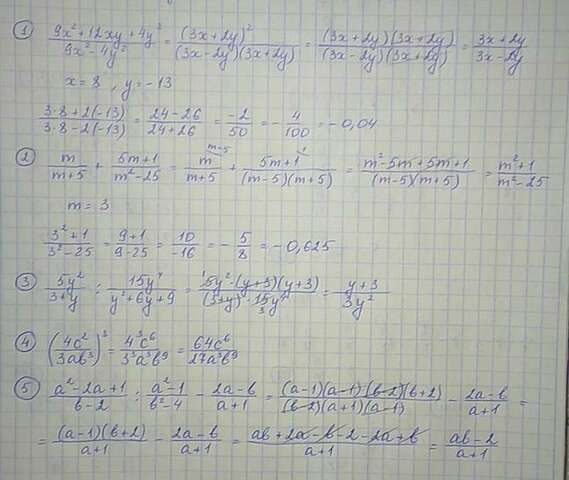 ① (9x²+12xy+4y²)/(9x²-4y²) = (3x+2y)²/((3x-2y)(3x+2y)) = ((3x+2y)(3x+2y))/((3x-2y)(3x+2y)) = (3x+2y)/(3x-2y)
x=8, y=-13
(3·8+2(-13))/(3·8-2(-13)) = (24-26)/(24+26) = -2/50 = -4/100 = -0,04
② m/(m+5) + (5m+1)/(m²-25) = m^(m-5)/(m+5) + (5m+1)^1/((m-5)(m+5)) = (m²-5m+5m+1)/((m-5)(m+5)) = (m²+1)/(m²-25)
m=3
(3²+1)/(3²-25) = (9+1)/(9-25) = 10/-16 = -5/8 = -0,625
③ 5y²/(3+y) : 15y⁴/(y²+6y+9) = (¹5y²·(y+3)(y+3))/((3+y)·15₃y⁴) = (y+3)/(3y²)
④ (4c²/(3ab³))³ = 4³c⁶/(3³a³b⁹) = 64c⁶/(27a³b⁹)
⑤ (a²-2a+1)/(b-2) : (a²-1)/(b²-4) - (2a-b)/(a+1) = ((a-1)(a-1)(b-2)(b+2))/((b-2)(a+1)(a-1)) - (2a-b)/(a+1) =
= ((a-1)(b+2))/(a+1) - (2a-b)/(a+1) = (ab+2a-b-2-2a+b)/(a+1) = (ab-2)/(a+1)